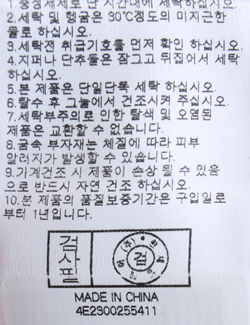 1.중성세제로 단 시간내에 세탁하십시오.
2.세탁 및 헹굼은 30℃정도의 미지근한
물로 하십시오.
3.세탁전 취급기호를 먼저 확인 하십시오.
4.지퍼나 단추등은 잠그고 뒤집어서 세탁
하십시오.
5.본 제품은 단일단독 세탁 하십시오.
6.탈수 후 그늘에서 건조시켜 주십시오.
7.세탁부주의로 인한 탈색 및 오염된
제품은 교환할 수 없습니다.
8.금속 부자재는 체질에 따라 피부
알러지가 발생할 수 있습니다.
9.기계건조 시 제품이 손상 될 수 있음
으로 반드시 자연 건조 하십시오.
10.본 제품의 품질보증기간은 구입일로
부터 1년입니다.
검사필
검
MADE IN CHINA
4E2300255411